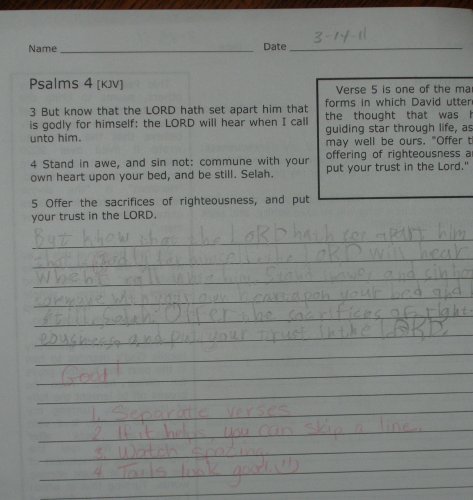 Name Date 3-14-11
Psalms 4 [KJV]
3 But know that the LORD hath set apart him that
is godly for himself: the LORD will hear when I call
unto him.
4 Stand in awe, and sin not: commune with your
own heart upon your bed, and be still. Selah.
5 Offer the sacrifices of righteousness, and put
your trust in the LORD.
Verse 5 is one of the
forms in which David
the thought that was
guiding star through life, as
may well be ours. "Offer
offering of righteousness
put your trust in the Lord."
But know that the LORD hath set apart him
that is godly for himself: the LORD will hear
when I call unto him. Stand awe and sin
commune with your own heart upon your bed and
still. Selah. Offer the sacrifices of right-
eousness, and put your trust in the LORD.
Goal!
1. Separate verses
2. If it helps, you can skip a line.
3. Watch spacing.
4. Tails look good. (!)